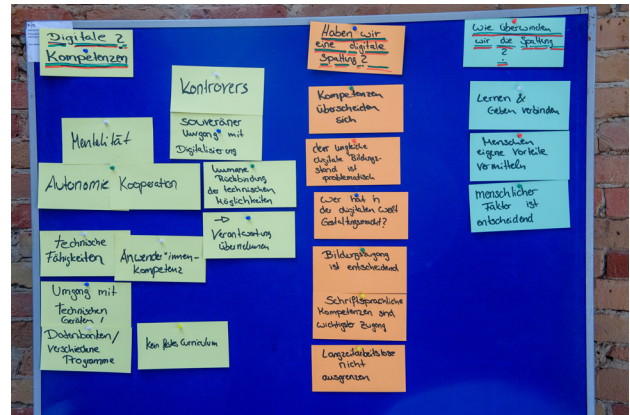 Digitale ?
Kompetenzen
Kontrovers
souveräner
Umgang mit
Digitalisierung
Mentalität
Autonomie
Kooperation
humane
Rückbindung
der technischen
Möglichkeiten
→
Verantwortung
übernehmen
technische
Fähigkeiten
Anwender*innen-
Kompetenz
Umgang mit
technischen
Geräten /
Datenbanken/
verschiedene
Programme
Kein festes Curriculum
Haben wir
eine digitale
Spaltung ?
Kompetenzen
überscheiden
sich
der ungleiche
digitale Bildungs-
stand ist
problematisch
Wer hat in
der digitalen Welt
Gestaltungsmacht?
Bildungszugang
ist entscheidend
Schriftsprachliche
Kompetenzen sind
wichtigster Zugang
Langzeitarbeitslose
nicht
ausgrenzen
Wie überwinden
wir die Spaltung
?
Lernen &
Geben verbinden
Menschen
eigene Vorteile
vermitteln
menschlicher
Faktor ist
entscheidend